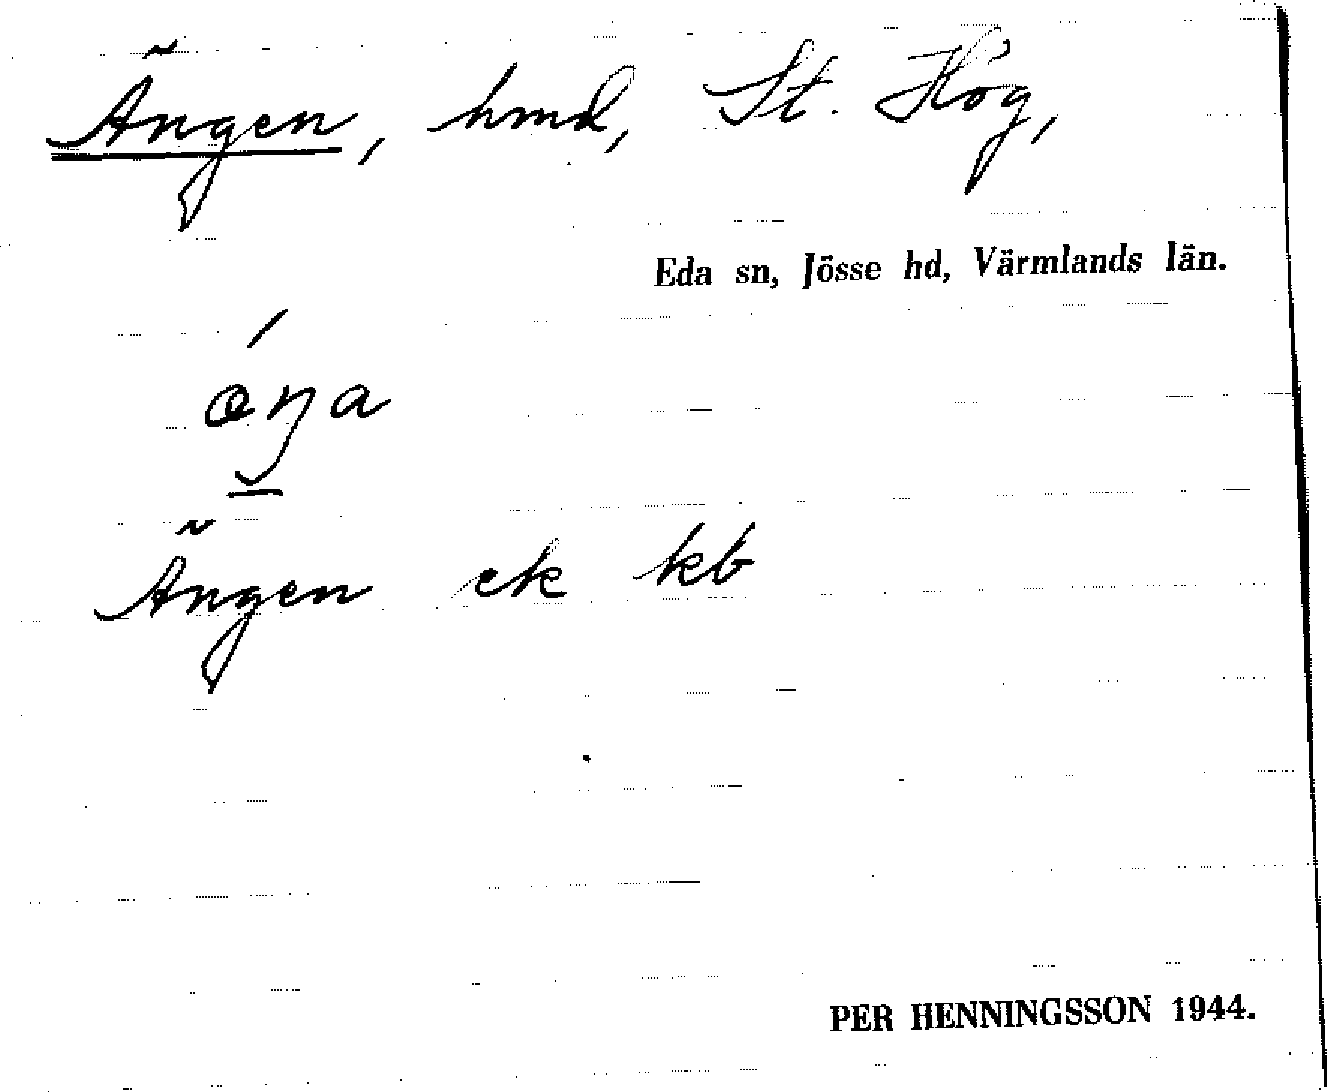 Ängen, hmd, St. Hög,
Eda sn, Jösse hd, Värmlands län.
Ängen ek kb
PER HENNINGSSON 1944.